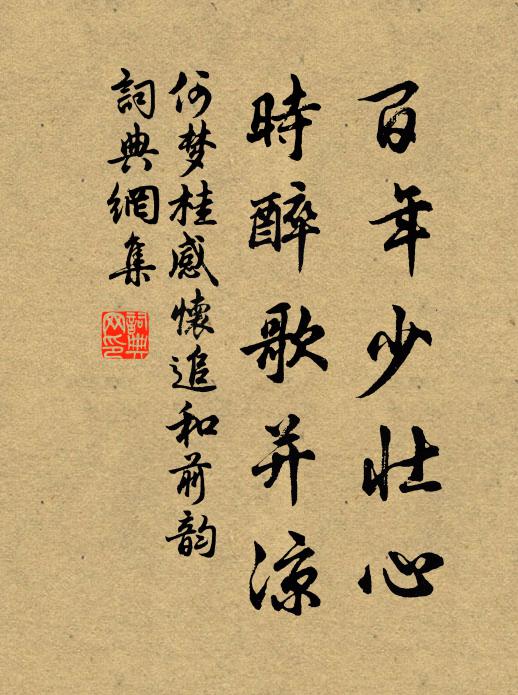 百年少壯心
時醉歌并涼
何梦桂感懷追和前韵
詞典網集
詞典网印